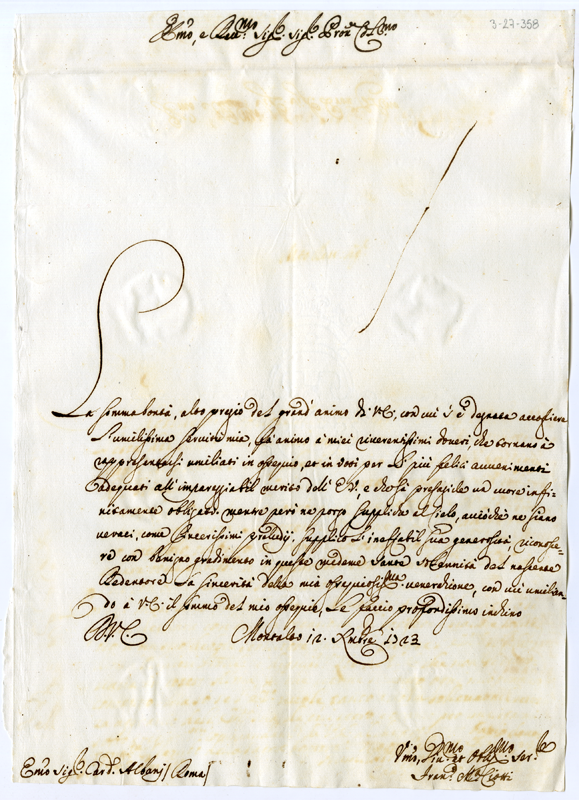 3-27-358
Emo, e Revmo Sigr. Sigr. Prone Colmo
La somma bontà, alto pregio del grand' animo di V.E., con cui s'è degnata accogliere
l'umilissima servitù mia, fà animo à miei riverentissimi doveri, che tornano à
rappresentarsi umiliati in ossequio, et in voti per li più felici avvenimenti
adeguati all' impareggiabil merito dell' E.V., e che sà presagirle un cuore infi-
nitamente obligato: mentre però ne porgo suppliche al Cielo, acciòche ne siano
veraci, come sincerissimi preludij. Supplico l' ineffabil sua generosità, riconosce-
re con benigno gradimento in queste vicine Sante Solennità del nascente
Redentore la sincerità della mia ossequiosissma venerazione, con cui umilian-
do à V.E. il sommo del mio ossequio, Le faccio profondissimo inchino
D.V.E. Montalto 12. Xmbre 1723
Emo Sigr. Card. Albani Roma
Umo, Devmo et Obblmo Serre
Franco Ma Ciotti